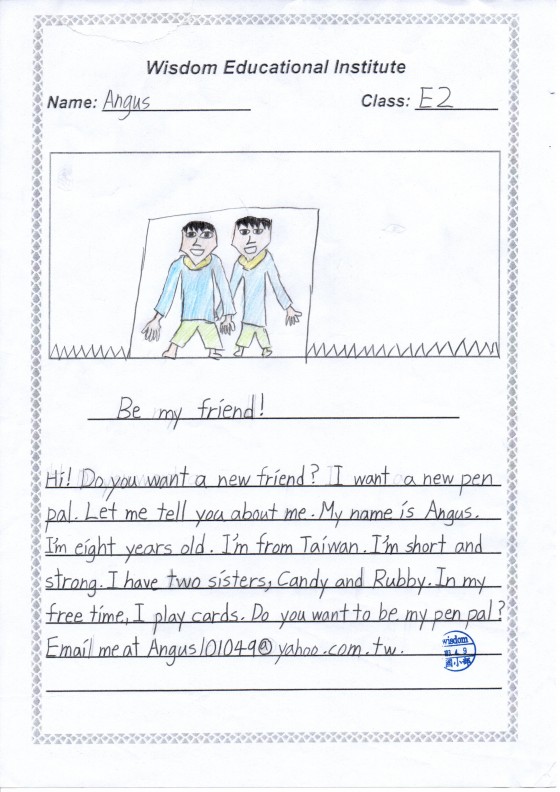 Wisdom Educational Institute
Name: Angus Class: E2
Be my friend!
Hi! Do you want a new friend? I want a new pen
pal. Let me tell you about me. My name is Angus.
I'm eight years old. I'm from Taiwan. I'm short and
strong. I have two sisters, Candy and Rubby. In my
free time, I play cards. Do you want to be my pen pal?
Email me at Angus101049@yahoo.com.tw.
wisdom